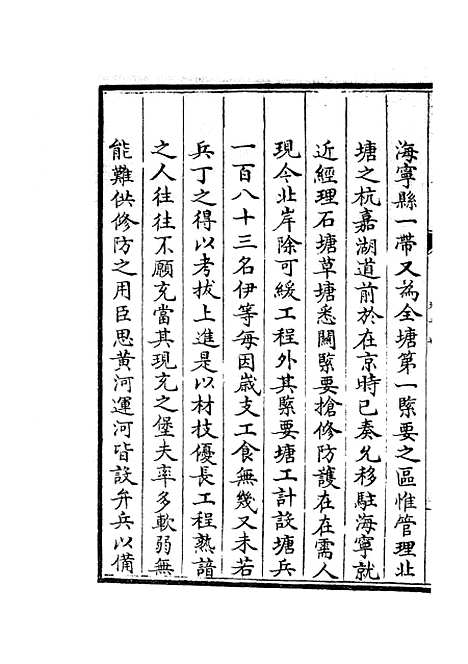 海寧縣一帶又為全塘第一緊要之區惟管理北
塘之杭嘉湖道前於在京時已奏允移駐海寧就
近經理石塘草塘悉關緊要搶修防護在在需人
現今北岸除可緩工程外其緊要塘工計設塘兵
一百八十三名伊等每因歲支工食無幾又未若
兵丁之得以考拔上進是以材技優長工程熟諳
之人往往不願充當其現充之堡夫率多軟弱無
能難供修防之用臣思黃河運河皆設弁兵以備